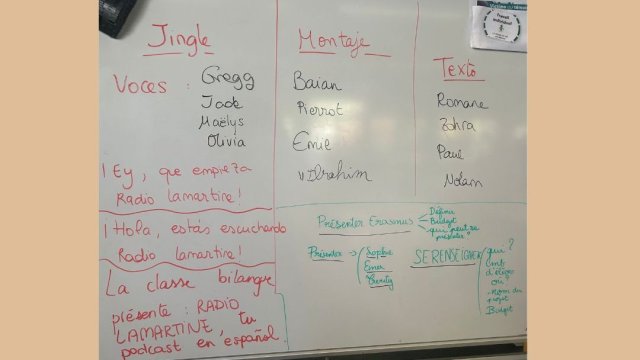 Jingle
Voces : Gregg
Jade
Maëlys
Olivia
¡Ey, que empieza
Radio Lamartine!
¡Hola, estás escuchando
Radio Lamartine!
La classe bilangue
présente : RADIO
LAMARTINE, tu
podcast en español.
Montaje
Baian
Pierrot
Emie
Ibrahim
Texto
Romane
Zohra
Paul
Nolam
Travail
individuel
Présenter Erasmus
Définir
Budget
qui peut se
présenter
Présenter
Sophie
Emer
SE RENSEIGNER
qui ?
cmb
d'élèves
où
-nom du
projet
Budget